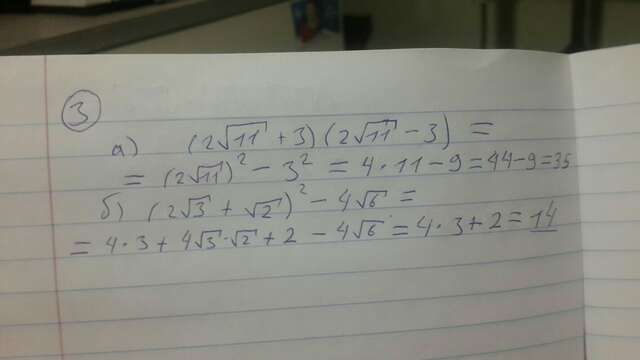 3
а) (2√11 + 3)(2√11 - 3) =
= (2√11)² - 3² = 4·11 - 9 = 44 - 9 = 35
б) (2√3 + √2)² - 4√6 =
= 4·3 + 4√3·√2 + 2 - 4√6 = 4·3 + 2 = 14